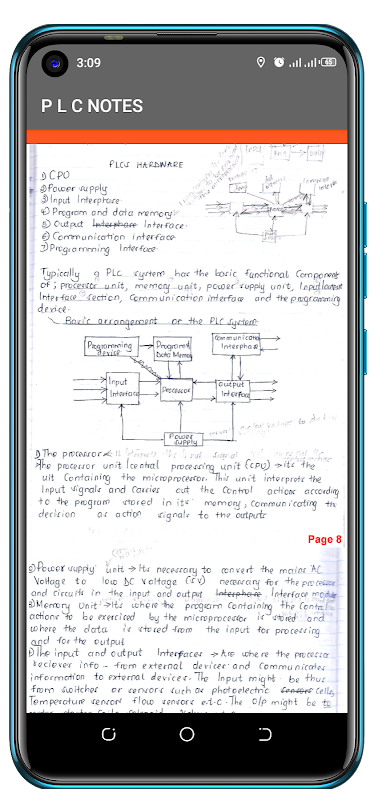 3:09
65
P L C NOTES
PLCS HARDWARE
1) CPU
2) Power supply
3) Input Interphace
4) Program and data memory
5) Output Interphace Interface.
6) Communication interface
7) Programming Interface
Typically a PLC system has the basic functional Component
of; processor unit, memory unit, power supply unit, Input/output
Interface section, Communication interface and the programming
device.
Basic arrangement of the PLC system
Programming device
Program & Data Memory
Communication Interphase
Input Interface
Processor
Output Interface
Power supply
1) The processor
The processor unit (central processing unit (CPU) → its the
ult Containing the microprocessor. This unit interprets the
Input signals and Carries out the Control actions according
to the program stored in its memory, Communicating the
decision as action signals to the outputs
Page 8
2) Power supply unit → Its necessary to convert the mains AC
Voltage to low DC voltage (5V) necessary for the processor
and circuits in the input and output Interphase Interface module
3) Memory Unit → Its where the program containing the Control
actions to be exercised by the microprocessor is stored and
where the data is stored from the input for processing
and for the output
The input and output Interfaces → Are where the processor
recieves info- from external devices and Communicates
information to external devices. The Input might be thus
from switches or sensors such as photoelectric sensors cells,
Temperature sensors flow sensors e.t.c. The O/p might be to